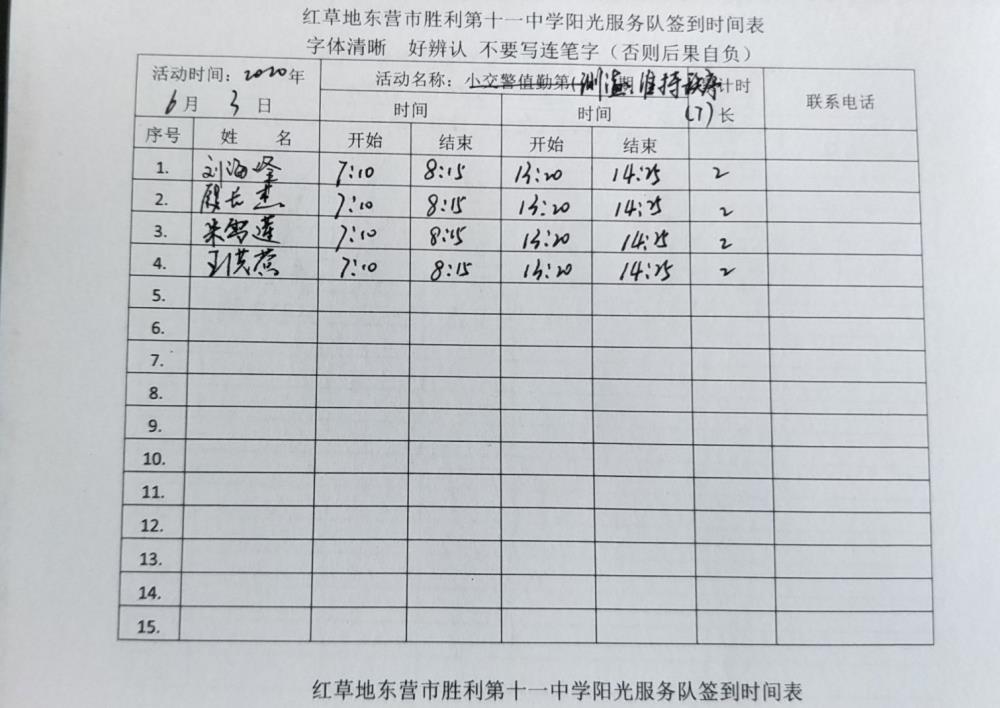 红草地东营市胜利第十一中学阳光服务队签到时间表
字体清晰 好辨认 不要写连笔字（否则后果自负）
活动时间：2020年 6月 3日 活动名称：小交警值勤第 期 测温 维持秩序 计时(7)长 联系电话
时间 时间
序号 姓 名 开始 结束 开始 结束
1. 刘海峰 7:10 8:15 13:20 14:25 2
2. 殷长杰 7:10 8:15 13:20 14:25 2
3. 朱雪莲 7:10 8:15 13:20 14:25 2
4. 王洪燕 7:10 8:15 13:20 14:25 2
5.
6.
7.
8.
9.
10.
11.
12.
13.
14.
15.
红草地东营市胜利第十一中学阳光服务队签到时间表